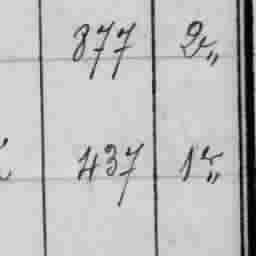 877 2„
437 15„